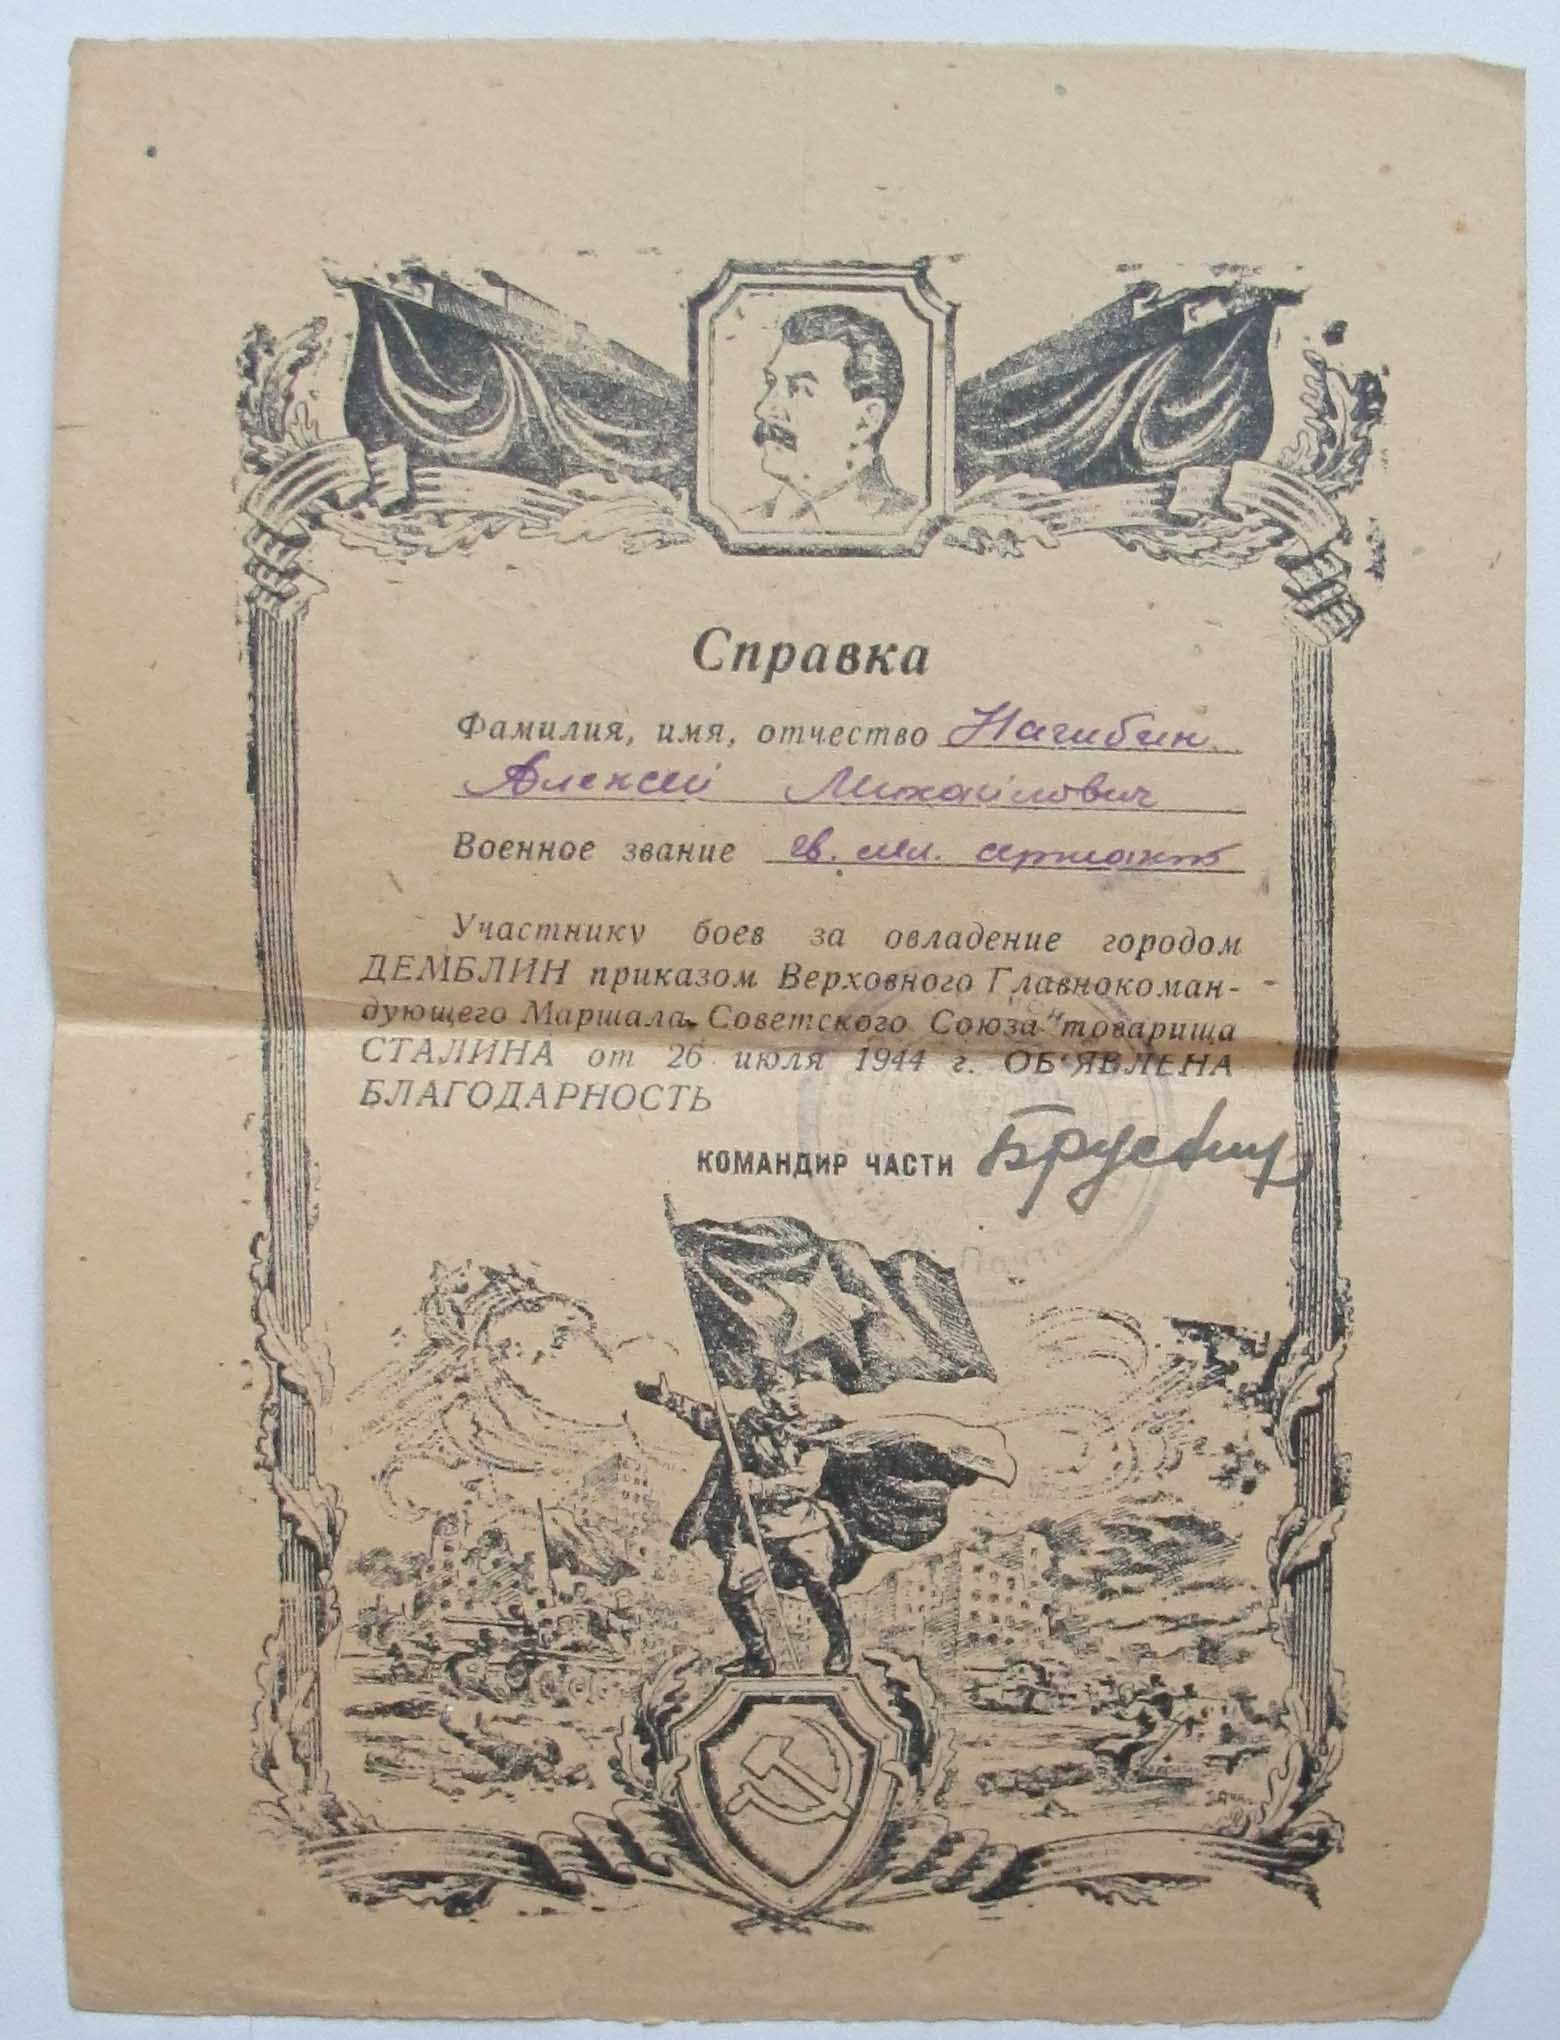 Справка
Фамилия, имя, отчество Нагибин
Алексей Михайлович
Военное звание гв. мл. сержант
Участнику боев за овладение городом
ДЕМБЛИН приказом Верховного Главнокоман-
дующего Маршала Советского Союза товарища
СТАЛИНА от 26 июля 1944 г. ОБ'ЯВЛЕНА
БЛАГОДАРНОСТЬ
КОМАНДИР ЧАСТИ